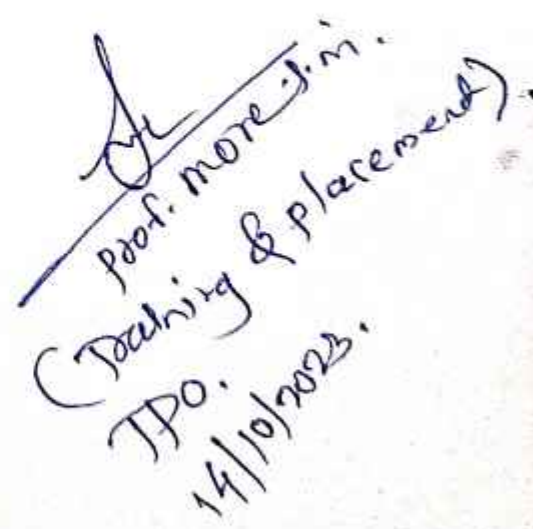 Prof. More S.M.
(Training & Placement).
TPO.
14/10/2023.